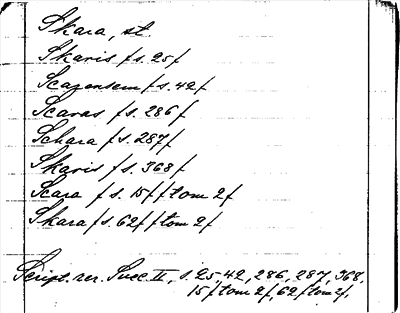 Skara, st.
Skaris / s. 25 /
Scarensem / s. 42 /
Scaras / s. 286 /
Schara / s. 287 /
Skaris / s. 368 /
Scara / s. 15 / / tom 2 /
Skara / s. 62 / / tom 2 /
Script. rer. Svec. II, s. 25, 42, 286, 287, 368,
15 / tom 2 /, 62 / tom 2 /.